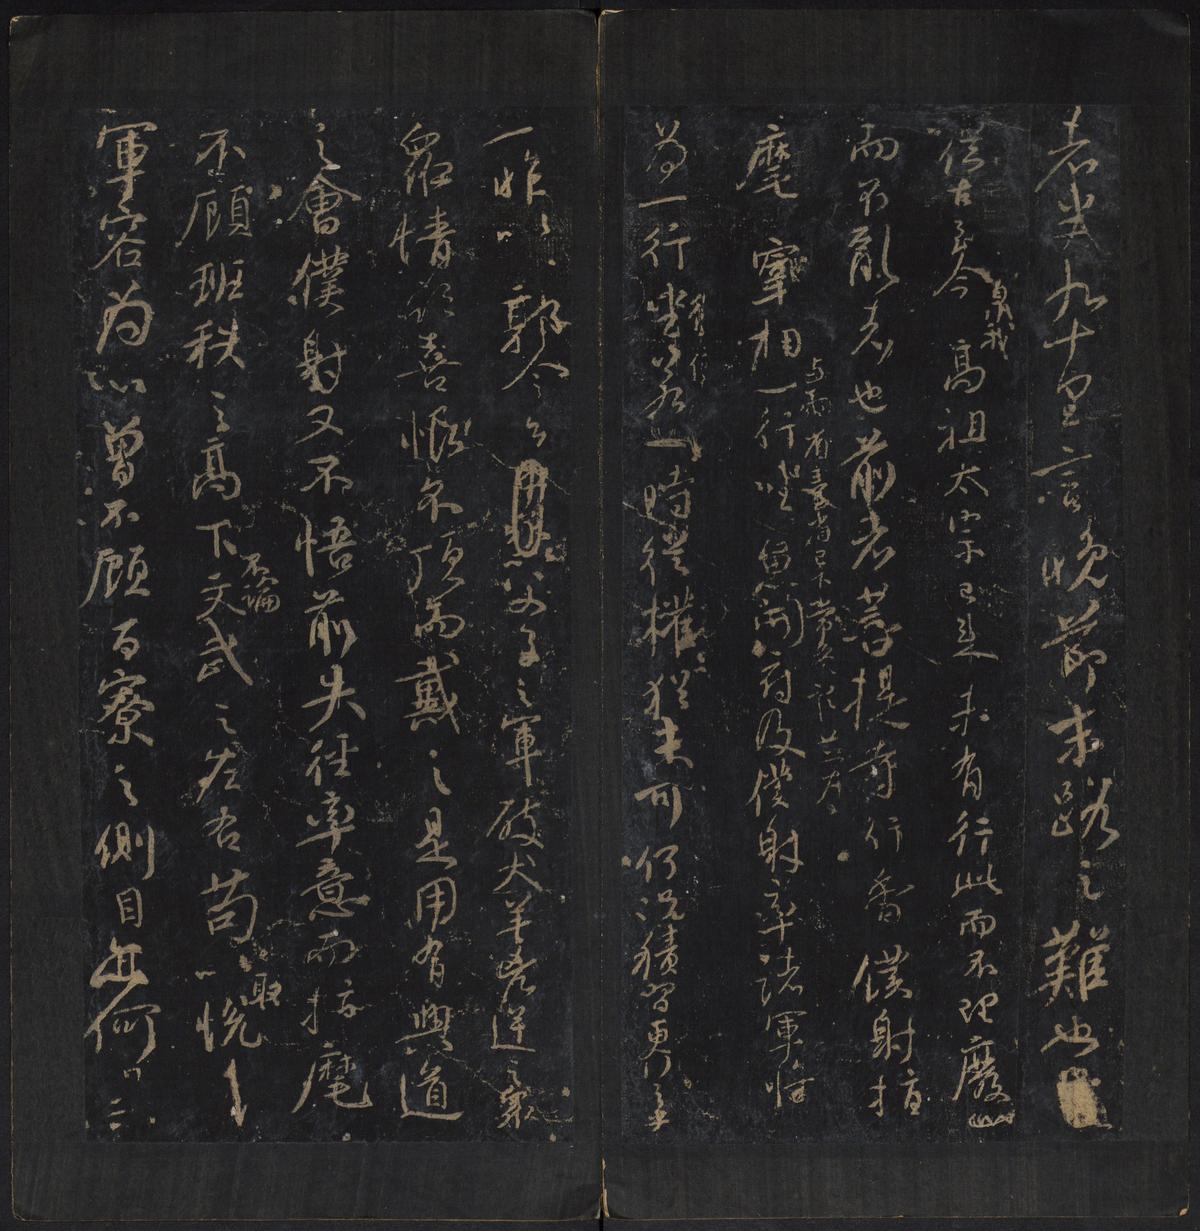 者半九十里言晚節末路之難也
從古至今暨我高祖太宗已來未有行此而不理廢此
而不亂者也前者菩提寺行香僕射指
麾宰相與兩省臺省已下常參官並為一行坐魚開府及僕射率諸軍將
為一行坐若以一時從權猶未可何況積習更行之乎
一昨以郭令公以父子之軍破犬羊凶逆之眾
眾情欣喜恨不頂而戴之是用有興道
之會僕射又不悟前失徑率意而指麾
不顧班秩之高下不論文武之左右苟以取悅
軍容為心曾不顧百寮之側目亦何